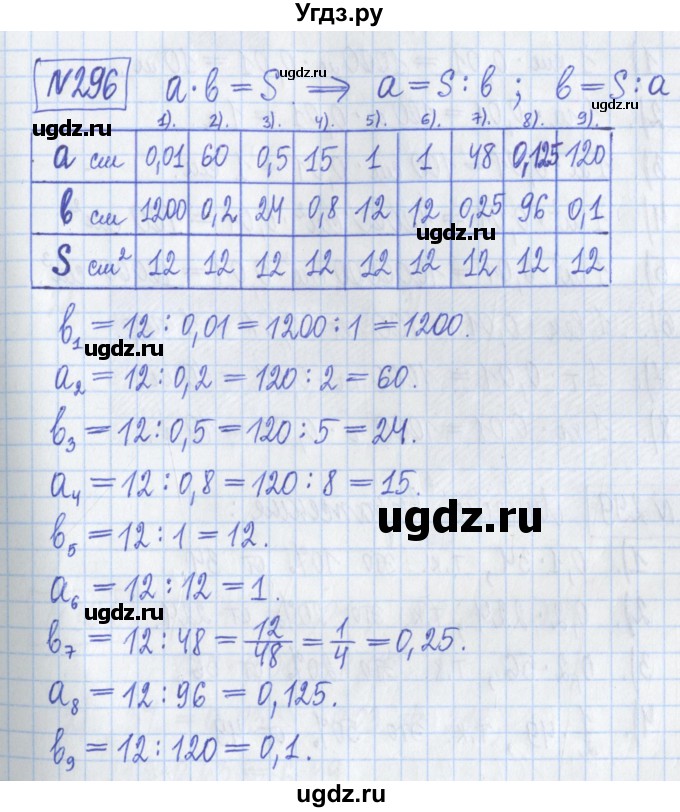 Угдз.ру
№296 a · b = S ⇒ a = S : b ; b = S : a
ugdz.ru
ugdz.ru
1). 2). 3). 4). 5). 6). 7). 8). 9).
ugdz.ru
a см 0,01 60 0,5 15 1 1 48 0,125 120
b см 1200 0,2 24 0,8 12 12 0,25 96 0,1
ugdz.ru ugdz.ru
S см² 12 12 12 12 12 12 12 12 12
b₁ = 12 : 0,01 = 1200 : 1 = 1200.
ugdz.ru
a₂ = 12 : 0,2 = 120 : 2 = 60.
b₃ = 12 : 0,5 = 120 : 5 = 24.
a₄ = 12 : 0,8 = 120 : 8 = 15.
ugdz.ru
b₅ = 12 : 1 = 12.
a₆ = 12 : 12 = 1.
ugdz.ru
b₇ = 12 : 48 = 12/48 = 1/4 = 0,25.
a₈ = 12 : 96 = 0,125.
b₉ = 12 : 120 = 0,1.
ugdz.ru
Угдз.ру